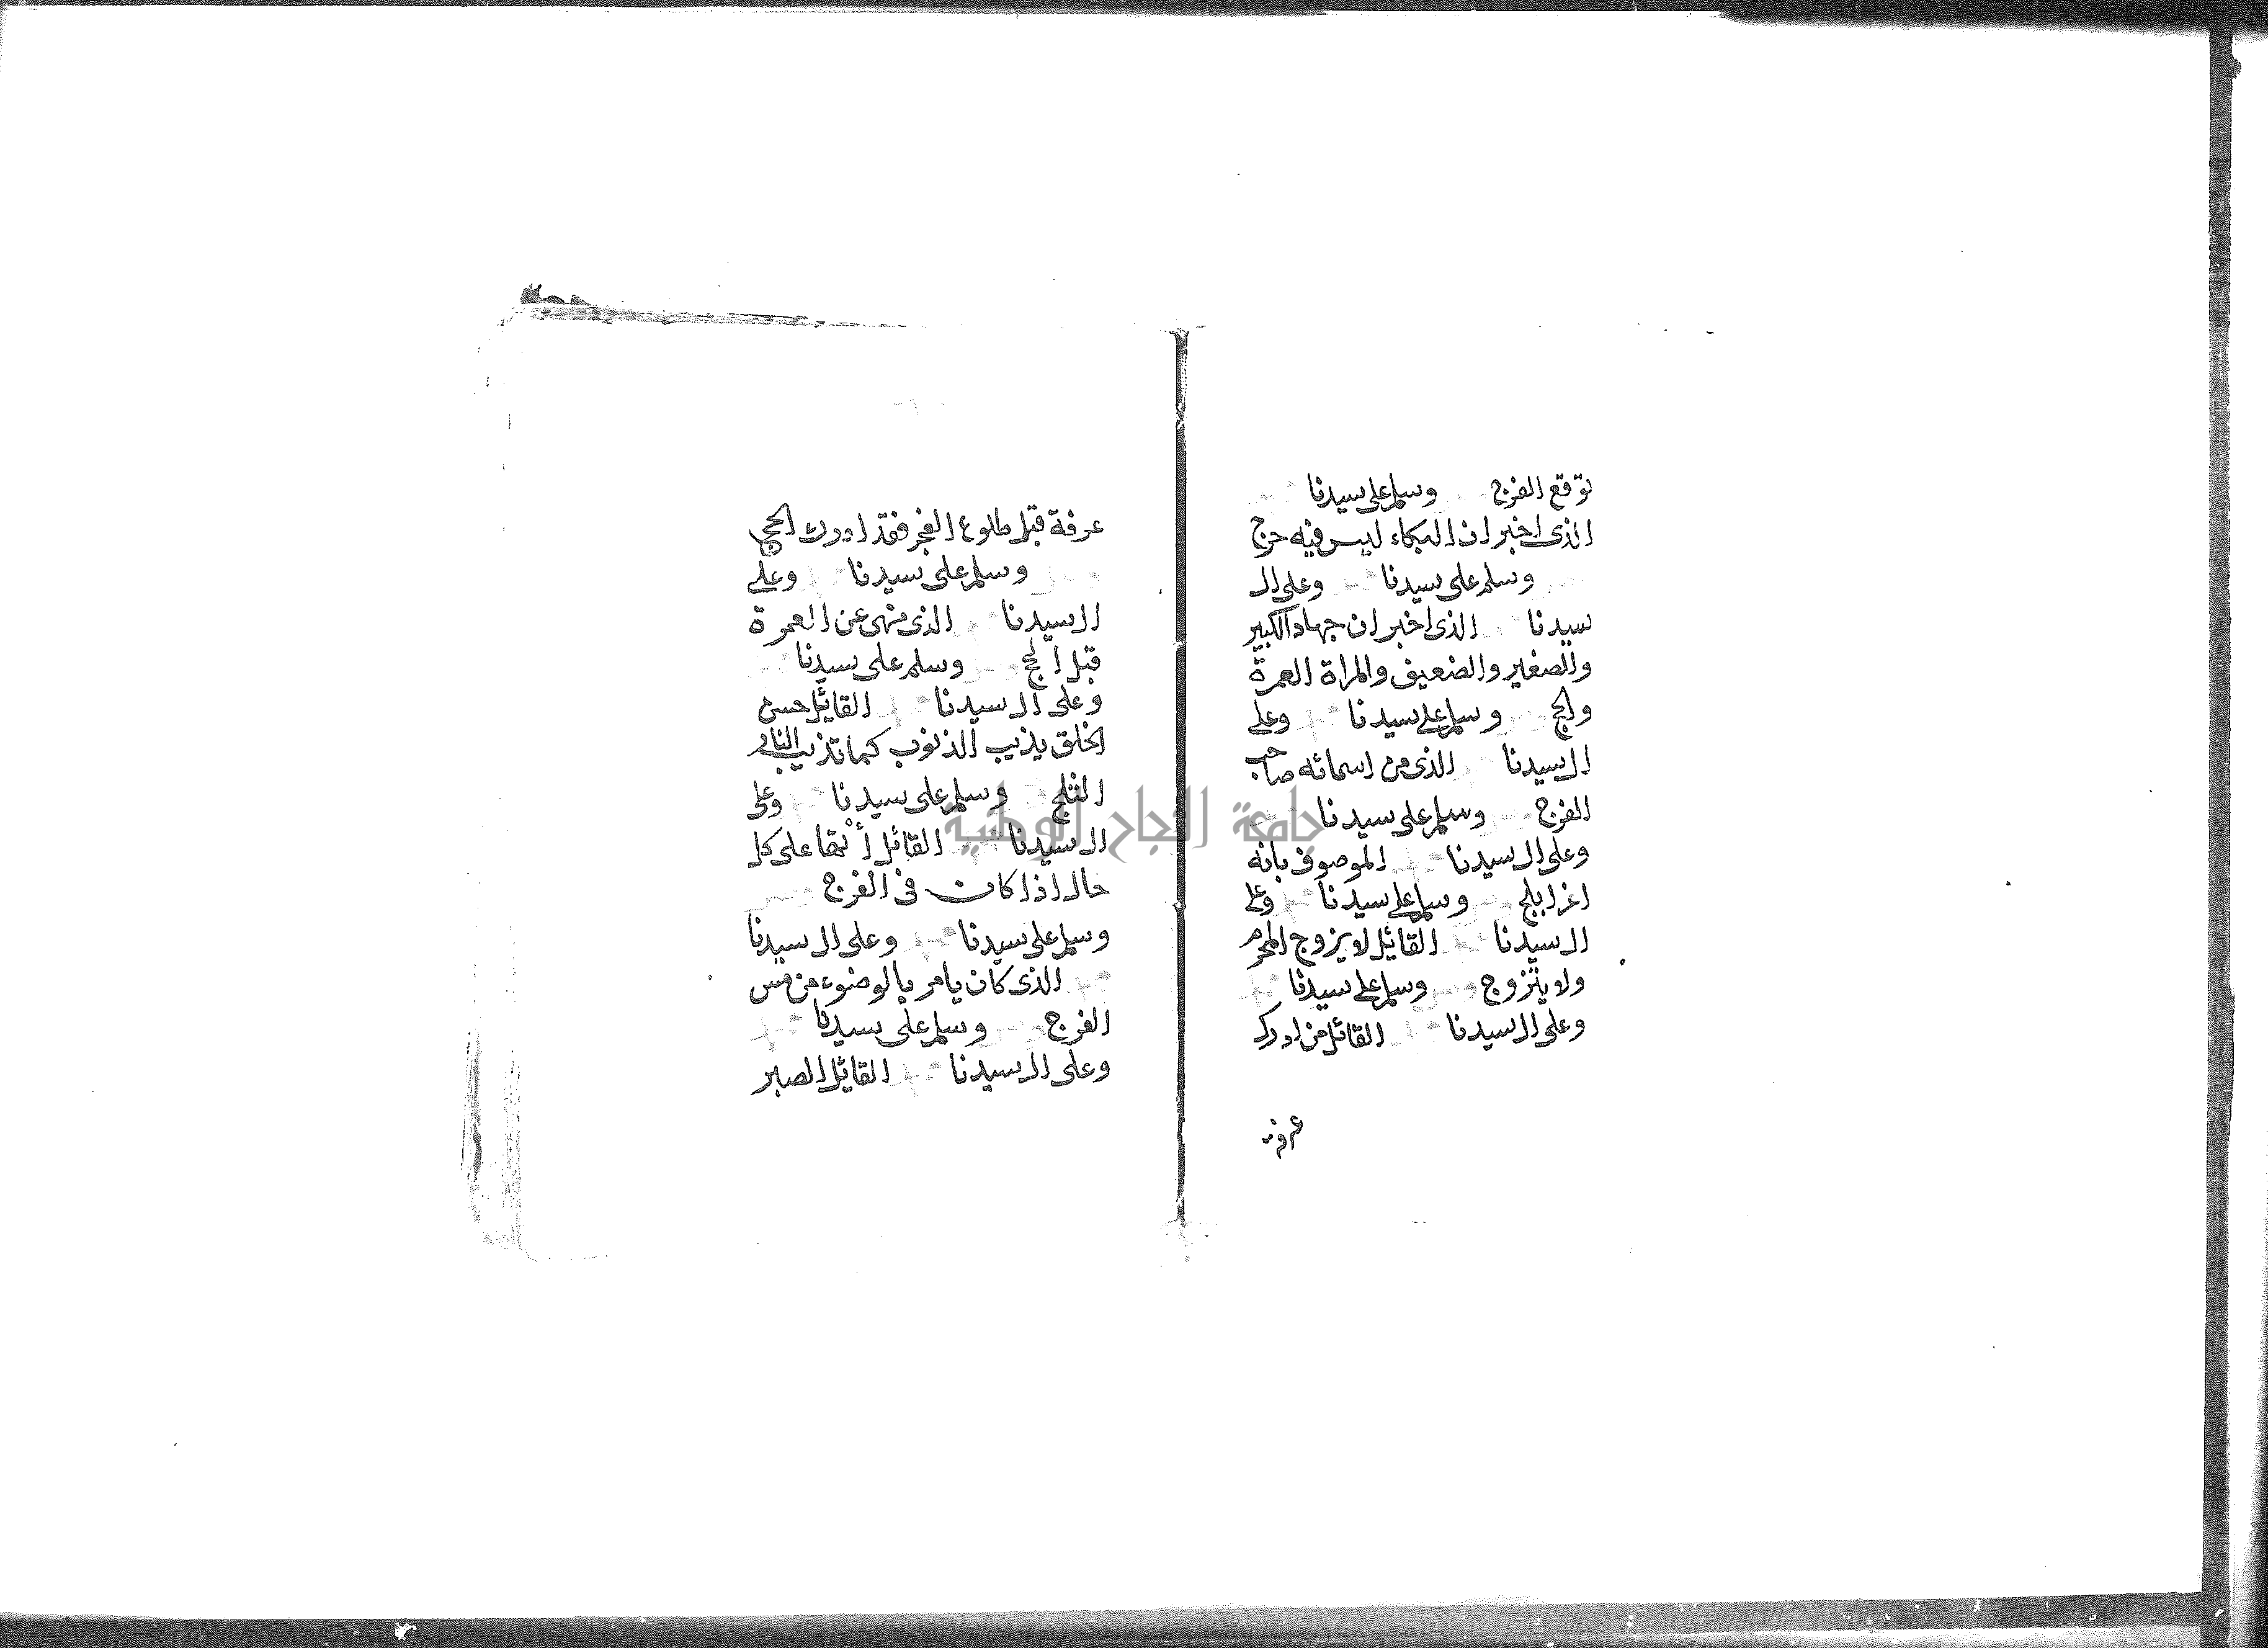 توقع الفرج وسلم على سيدنا
الذى اخبر ان البكاء ليس فيه حرج
وسلم على سيدنا وعلى ال
سيدنا الذى اخبر ان جهاد الكبير
والصغير والضعيف والمراة العمرة
والحج وسلم على سيدنا وعلى
ال سيدنا الذى من اسمائه صاحب
الفرج وسلم على سيدنا
وعلى ال سيدنا الموصوف بانه
اغر ابلج وسلم على سيدنا وعلى
ال سيدنا القائل لا يزوج المحرم
ولا يتزوج وسلم على سيدنا
وعلى ال سيدنا القائل من ادرك
عرفة
عرفة قبل طلوع الفجر فقد ادرك الحج
وسلم على سيدنا وعلى
ال سيدنا الذى نهى عن العمرة
قبل الحج وسلم على سيدنا
وعلى ال سيدنا القائل حسن
الخلق يذيب الذنوب كما تذيب النار
الثلج وسلم على سيدنا وعلى
ال سيدنا القائل أئتها على كل
حال اذا كان فى الفرج
وسلم على سيدنا وعلى ال سيدنا
الذى كان يامر بالوضوء من مس
الفرج وسلم على سيدنا
وعلى ال سيدنا القائل الصبر
جامعة النجاح الوطنية